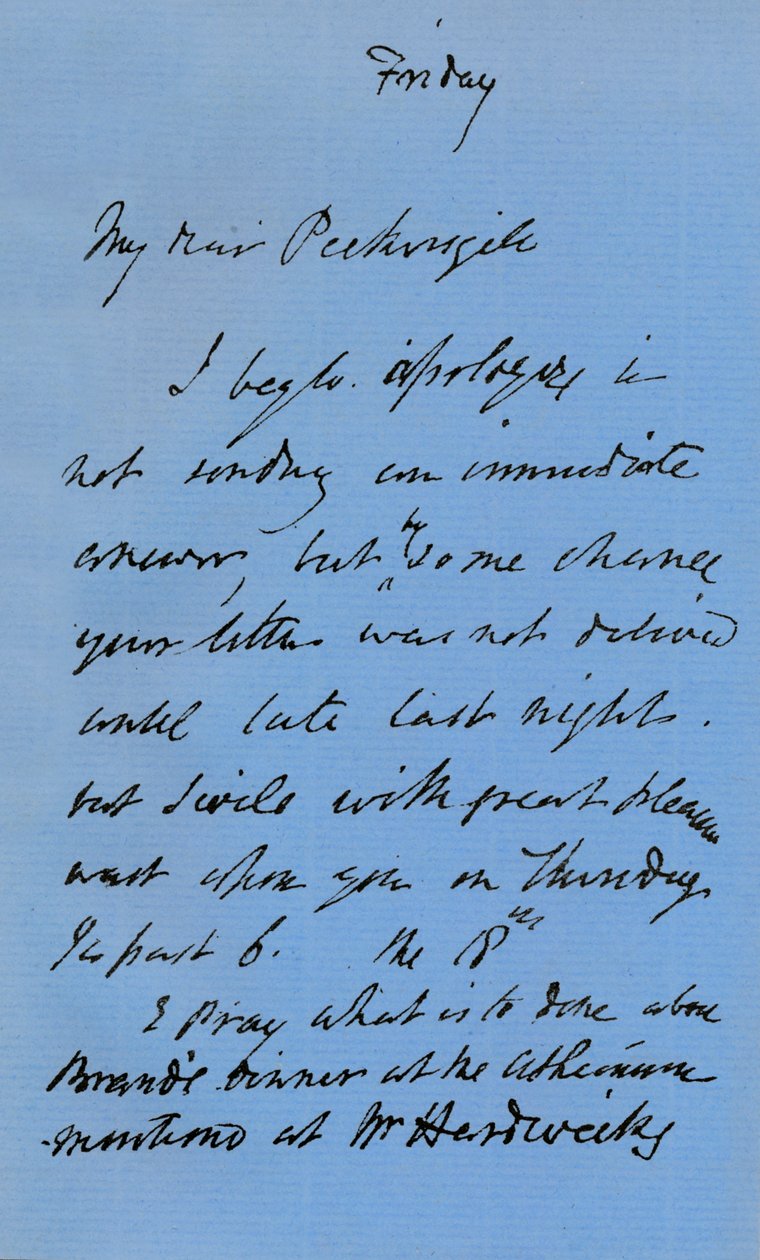 Friday
My dear Pickersgill
I beg to apologize in
not sending an immediate
answer, but by some chance
your letter was not delivered
until late last night.
but I will with great pleasure
wait upon you on Thursday
½ past 6. the 18th
& pray what is to done about
Brand's dinner at the Atheneum
mentioned at Mr Hardwicks